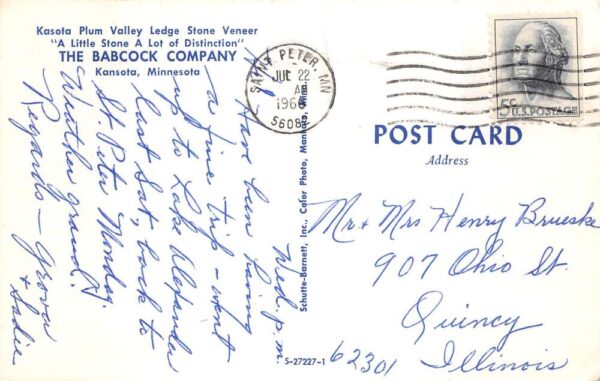 Kasota Plum Valley Ledge Stone Veneer
"A Little Stone A Lot of Distinction"
THE BABCOCK COMPANY
Kansota, Minnesota
Wed. p.m.
Hi,
Have been having
a fine trip - went
up to Lake Alexander
last Sat, back to
St Peter Monday.
Weather grand!
Regards - Grova
+ Sadie
Schutte-Barnett, Inc., Color Photo, Mankato, Minn.
S-27227-1
SAINT PETER, MN
JUL 22
AM
1966
56082
5c U.S. POSTAGE
POST CARD
Address
Mr + Mrs Henry Brueske
907 Ohio St.
Quincy
62301 Illinois